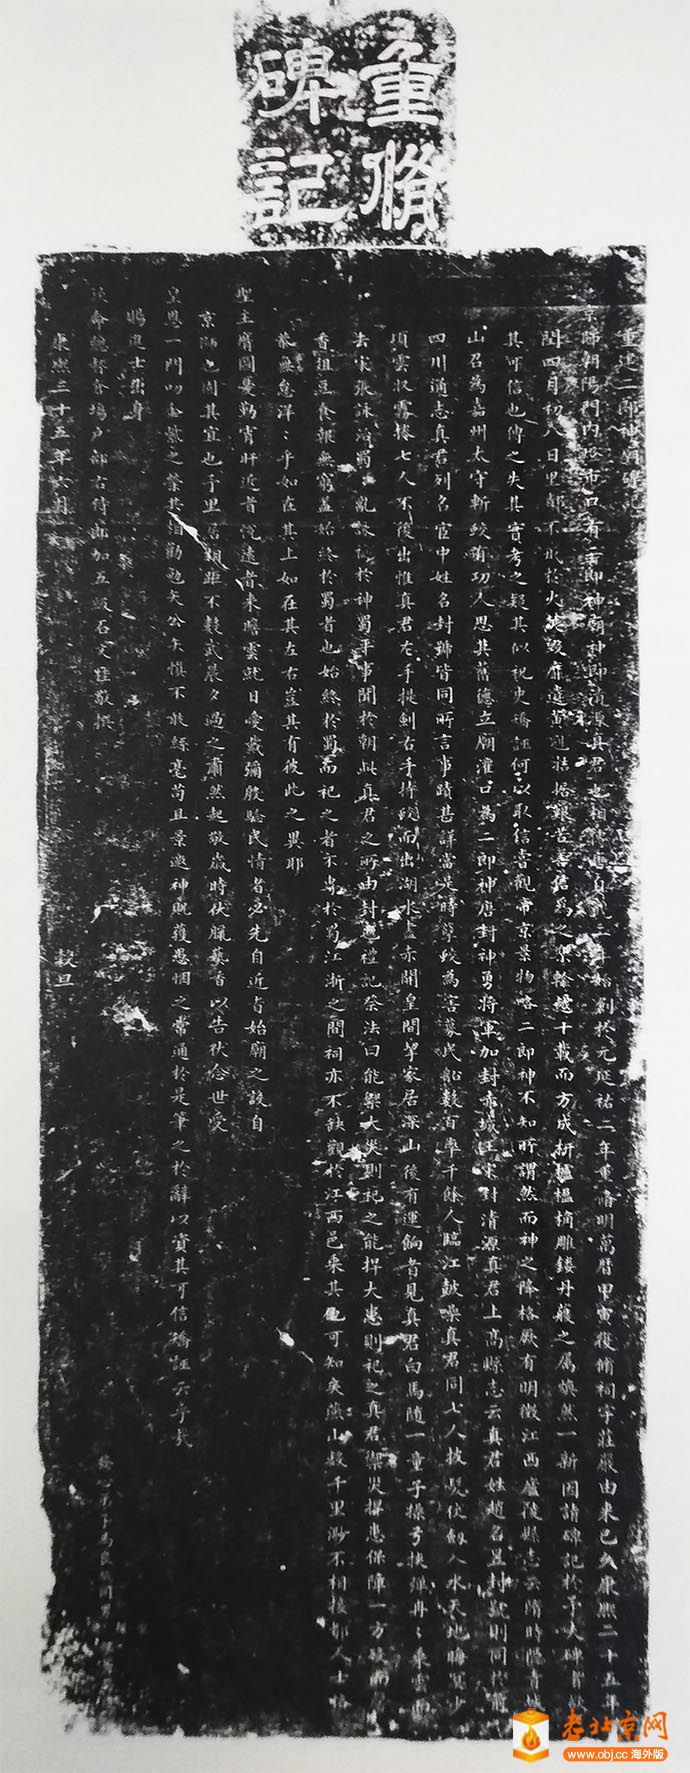 重脩
碑記
重建二郎神廟碑
京師朝陽門內 市口有二郎神廟神即清源真君也相傳 貞觀二年始創於元延祐二年重脩明萬曆甲寅復脩祠宇莊嚴由來已久康熙二十五年
閏四月初八日里鄰不戒於火 毀靡遺 拮据艱苦 信為之 踰十載而方成 櫨楹桷雕鏤丹雘之屬煥然一新因請碑記於予夫碑
其可信也傳之失其實考之疑其似祝史矯誣何以取信嘗觀帝京景物略二郎神不知所謂然而神之降格厥有明徵江西廬陵縣志云隋時隱青
山召為嘉州太守斬蛟有功人思其舊德立廟灌口為二郎神唐封神勇將軍加封赤城王宋封清源真君上高縣志云真君姓趙名昱封號則同於
四川通志真君列名宦中姓名封號皆同所言事蹟甚詳當是時 蛟為害募民船數百率千餘人臨江鼓噪真君同七人披髮仗劍入水天地晦冥少
頃雲收霧捲七人不復出惟真君左手提劍右手持蛟而出湖水盡赤開皇間挈家居深山後有運餉者見真君白馬隨一童子操弓挾彈冉冉乘雲而
去宋張詠治蜀亂 於神蜀平事聞於朝此真君之所由封也禮記祭法曰能禦大災則祀之能捍大患則祀之真君禦災捍患保障一方
香俎豆食報無窮蓋始終於蜀者也始終於蜀而祀之者不專於蜀江浙之間祠亦不缺觀於江西邑乘其 可知矣燕山數千里渺不相接都人士
恭無怠洋洋乎如在其上如在其左右豈其有彼此之異耶
聖主膺圖憂勤宵旰近者悅遠者來瞻雲就日愛戴彌殷驗民情者必先自近者始廟之設自
京師也固其宜也予里居 距不數武晨夕過之肅然起敬歲時伏臘爇香以告伏念世受
皇恩一門叨金紫之榮其 勸勉矣公矢慎不敢絲毫苟且景邀神貺獲愚悃之常通於是筆之於辭以資其可信矯誣云乎哉
賜進士出身
欽命總督倉場戶部右侍郎加五級石文桂敬撰
康熙三十五年六月 穀旦